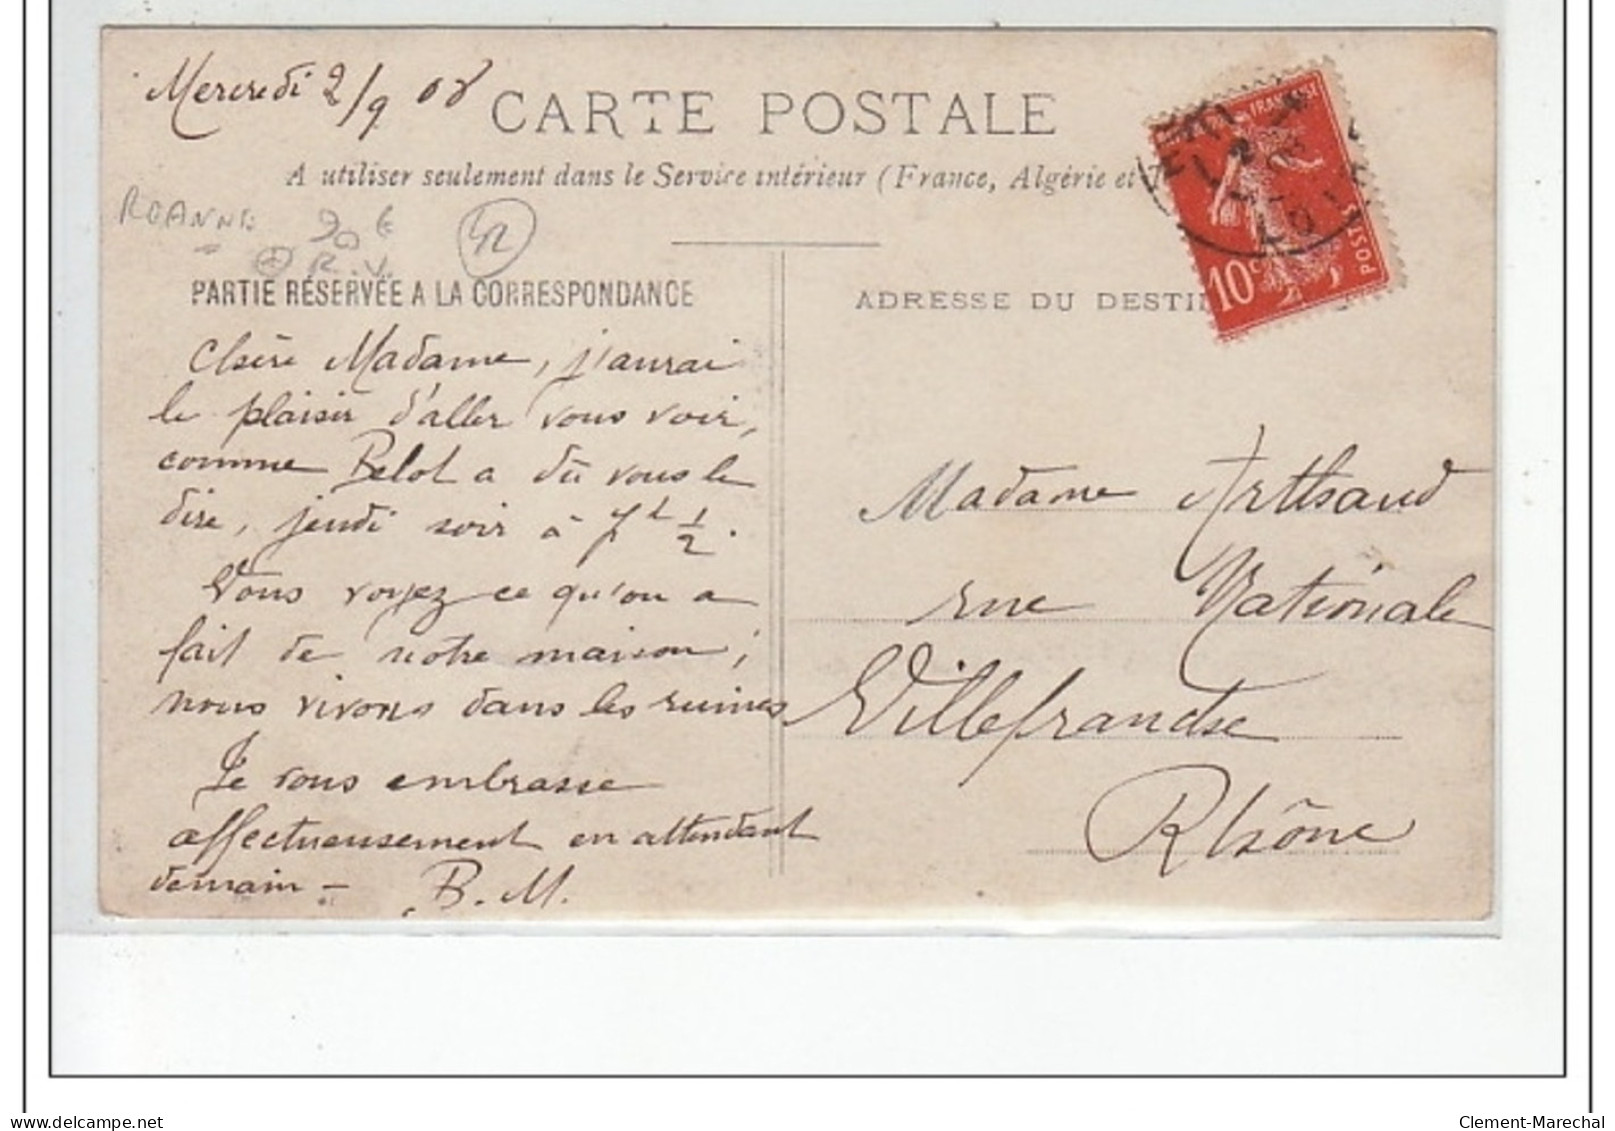 Mercredi 2/9 08
CARTE POSTALE
A utiliser seulement dans le Service intérieur (France, Algérie et
ROANNE 90 €
R.V.
42
PARTIE RÉSERVÉE A LA CORRESPONDANCE
Chère Madame, j'aurai
le plaisir d'aller vous voir,
comme Belot a dû vous le
dire, jeudi soir à 7h 1/2.
Vous voyez ce qu'on a
fait de notre maison ;
nous vivons dans les ruines
Je vous embrasse
affectueusement en attendant
demain - B. M.
ADRESSE DU DESTI
FRANÇAISE
10c
POSTES
Madame Arthaud
rue Nationale
Villefranche
Rhône
delcampe.net
Clement-Marechal